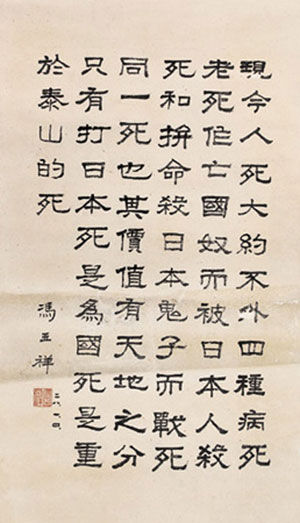 現今人死大約不外四種病死
老死作亡國奴而被日本人殺
死和拚命殺日本鬼子而戰死
同一死也其價值有天地之分
只有打日本死是為國死是重
於泰山的死
馮玉祥
二八、一、四、